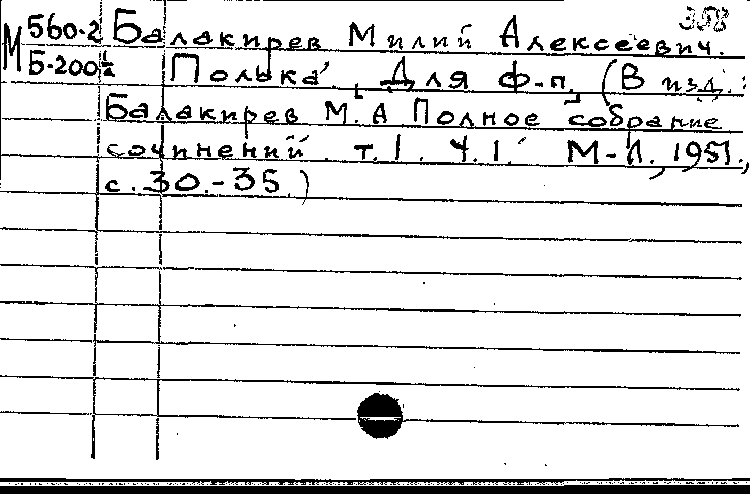 358
М 560-2 Балакирев Милий Алексеевич.
Б-200 Полька. [Для ф-п.] (В изд.:
Балакирев М.А. Полное собрание
сочинений. т.1. Ч.1. М-Л., 1951.,
с. 30.-35.)